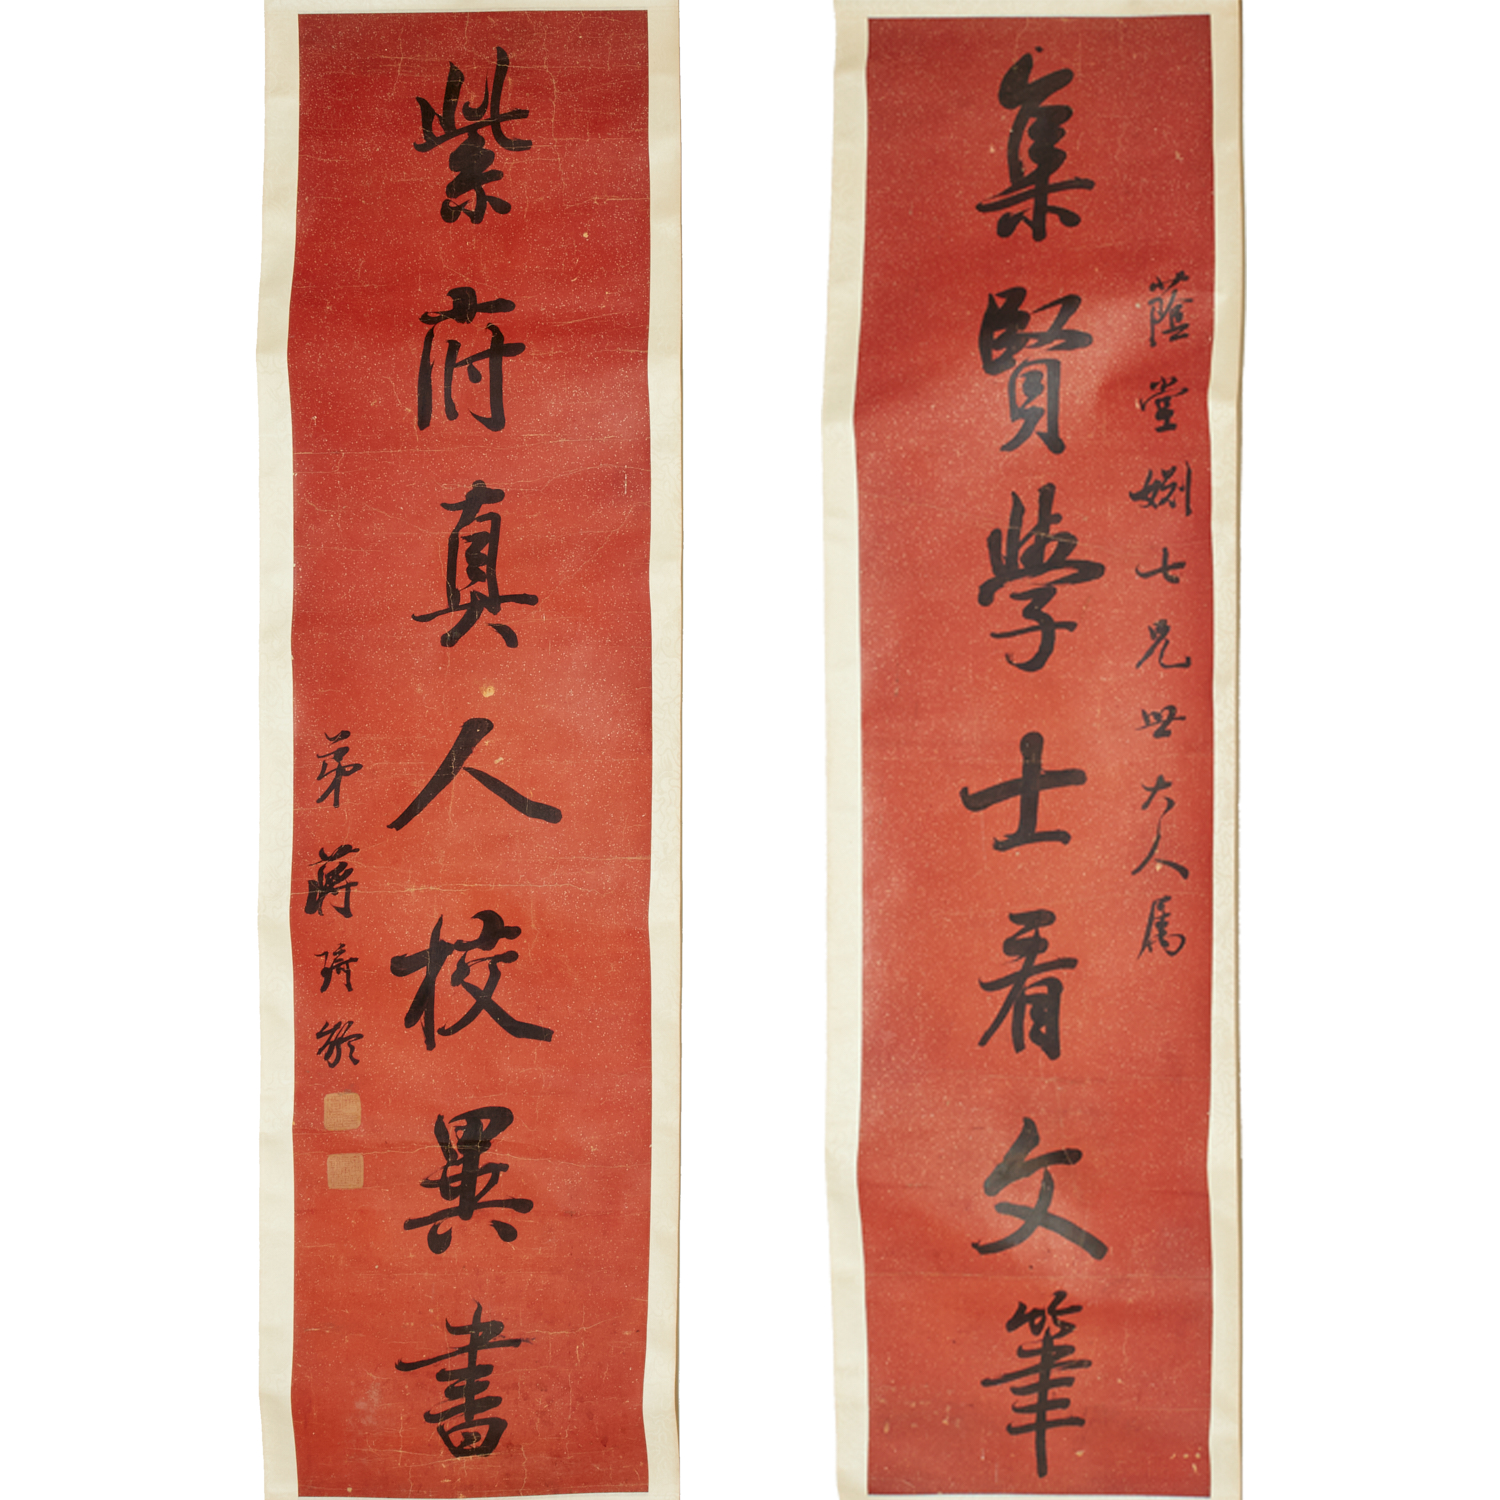 蔭堂姻七兄世大人属
集賢學士看文筆
紫府真人校異書
弟蔣琦齡